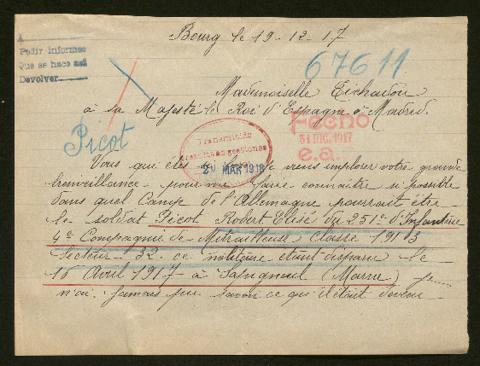 Bourg le 19-12-17
A
Pedir informes
Que se hace así
Devolver
67611
Mademoiselle
à sa Majesté le Roi d'Espagne à Madrid.
Picot
Transmitido
21 MAR 1918
Fecho
31 DIC. 1917
e.a.
Vous qui êtes si bon je viens implorer votre grande
bienveillance pour me faire connaître si possible
dans quel Camp de l'Allemagne pourrait être
le soldat Picot Robert Elisé du 251e d'Infanterie
4e Compagnie de Mitrailleuse Classe 1913
Secteur 32. ce militaire étant disparu le
16 Avril 1917 à (Marne) je
n'ai jamais pu savoir ce qu'il était devenu